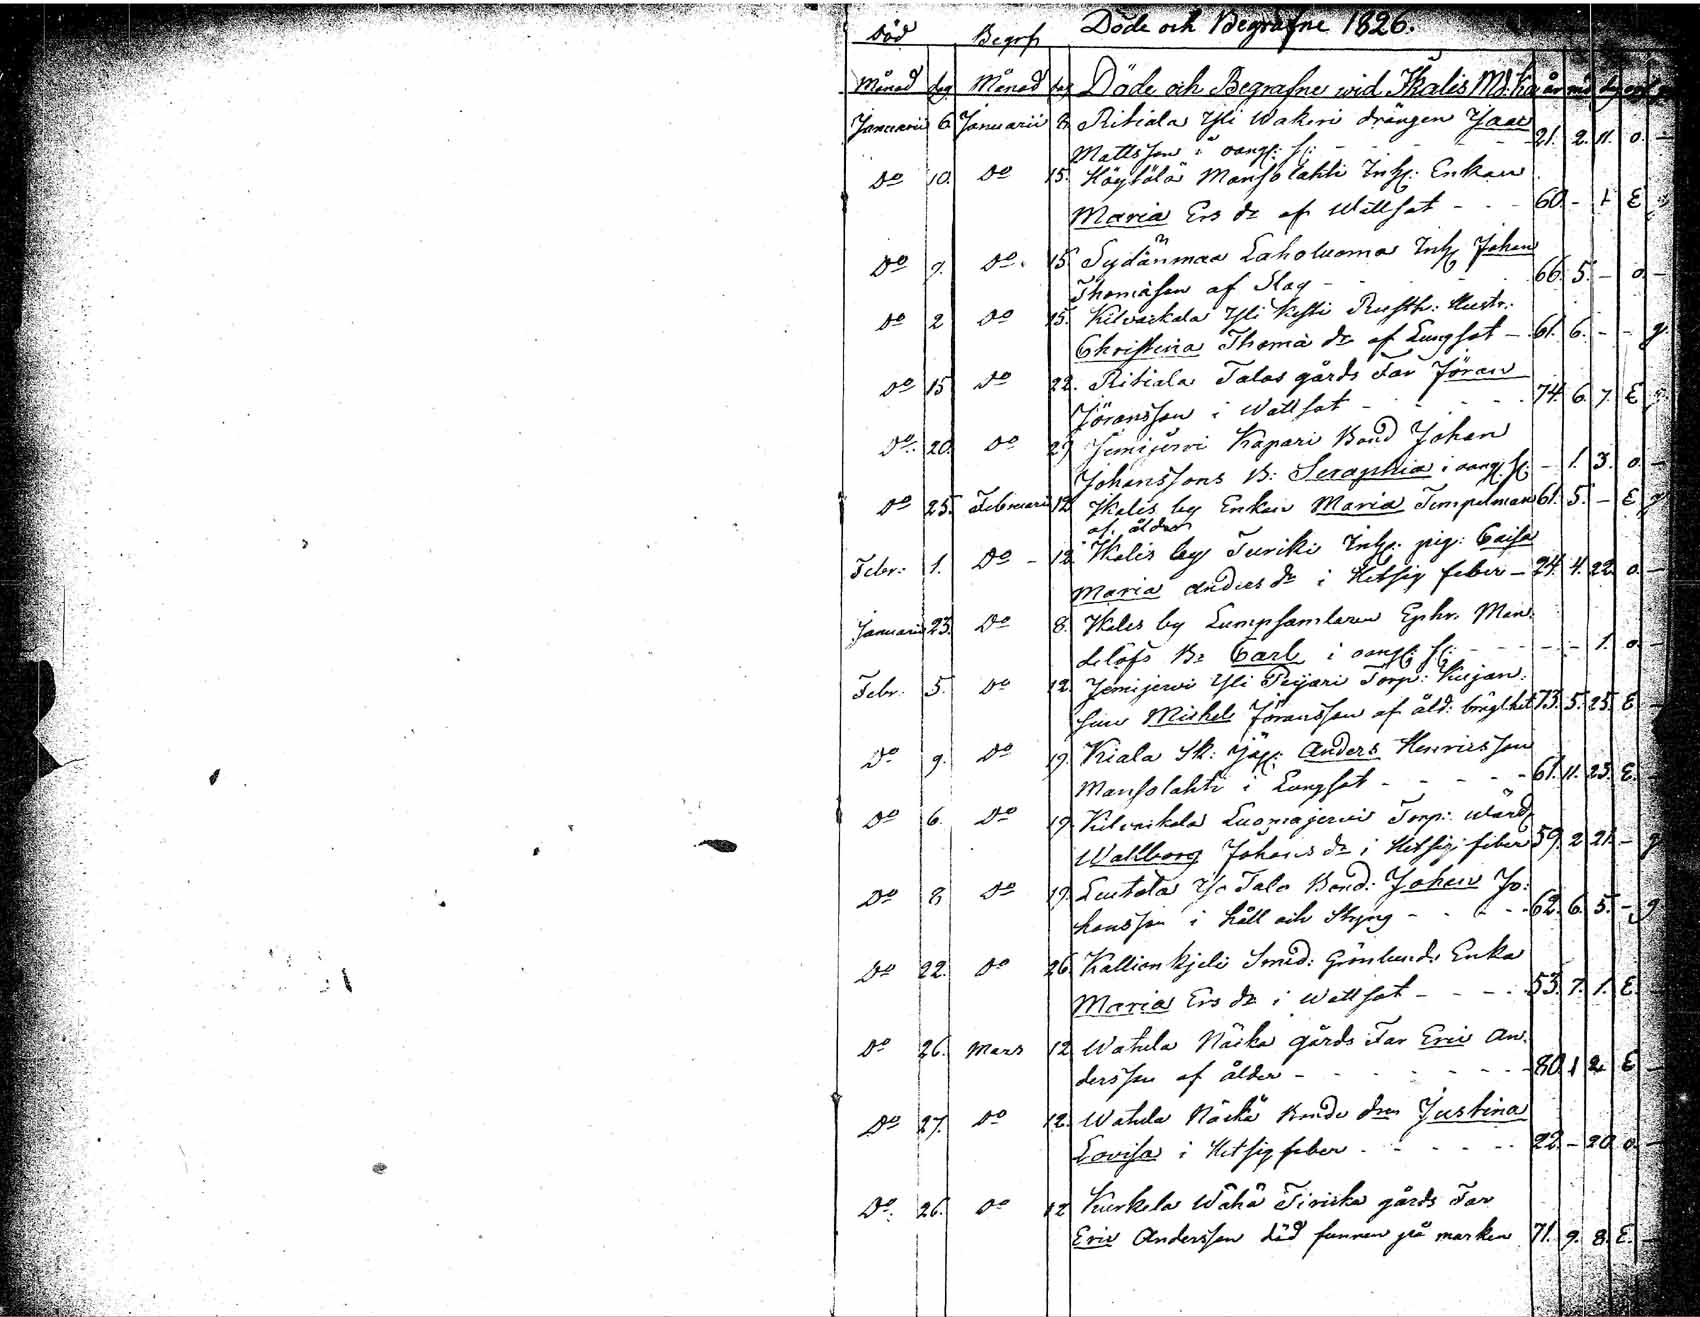 Döde och Begrafne 1826.
Död Begrf
Månad dag Månad dag Döde och Begrafne wid Ikalis Md: år md dg
Januarii 6. Januarii 8. Ritiala Yli Wakeri drängen Jaac
Mattsson i oang: sj: - - - 21. 2. 11. o. -
Do 10. Do 15. Höytölä Mansolahti Inh: Enkan
Maria Ers dr af Wattsot - - - 60. - 1 E
Do 9. Do. 15. Sydänmaa Laholuoma Inh: Johan
Thomasson af Slag - - - 66. 5. - o. -
Do 2 Do 15. Kilvackala Yli Kesti Rusth: Hustr:
Christina Thoma dr af Lungsot - 61. 6. - - g.
Do 15 Do 22. Ritiala Talas gårds Far Jöran
Jöransson i Wattsot - - - 74. 6. 7. E g.
Do 20. Do 29 Jemijerwi Kapari Bond Johan
Johanssons B: Seraphia i oang: sj: - 1. 3. o. -
Do 25. Februarii 12. Ikalis by Enkan Maria Tempelman 61. 5. - E g
af ålder
Febr: 1. Do - 12. Ikalis by Turiki Inh: pig: Caisa
Maria Anders dr i Hetsig feber - 24. 4. 22. o. -
Januarii 23. Do 8. Ikalis by Lumpsamlaren Ephr. Man:
delöfs Br Carl i oang: sj: - - - 1. o. -
Febr: 5. Do 12. Jemijerwi Yli Peijari Torp: Kujan:
suu Michel Jöransson af åld: bräglhet 73. 5. 25. E -
Do 9. Do 19. Kiala Sk: Jäg: Anders Henricsson
Mansolahti i Lungsot - - - 61. 11. 23. E. -
Do 6. Do 19. Kilvaikala Luomajerwi Torp: wärd:
Walborg Johans dr i Hetsig feber 59. 2 21. - g
Do 8 Do 19. Luutola Yso Talo Bond: Johan Jo:
hansson i håll och Styng - - - 62. 6. 5. - g
Do 22. Do 26. Kallionkjeli Smed: Grönlunds Enka
Maria Ers dr i Wattsot - - - 53. 7. 1. E. -
Do 26. Mars 12 Watula Näcka gårds Far Eric An:
dersson af ålder - - - 80. 1 2. E -
Do 27. Do 12. Watula Näckä Bonde dr Justina
Lovisa i Hetsig feber - - - 22. - 20. o. -
Do. 26. Do 12 Kurkela Wähä Tiricka gårds Far
Eric Andersson död funnen på marken 71. 9. 8. E. -